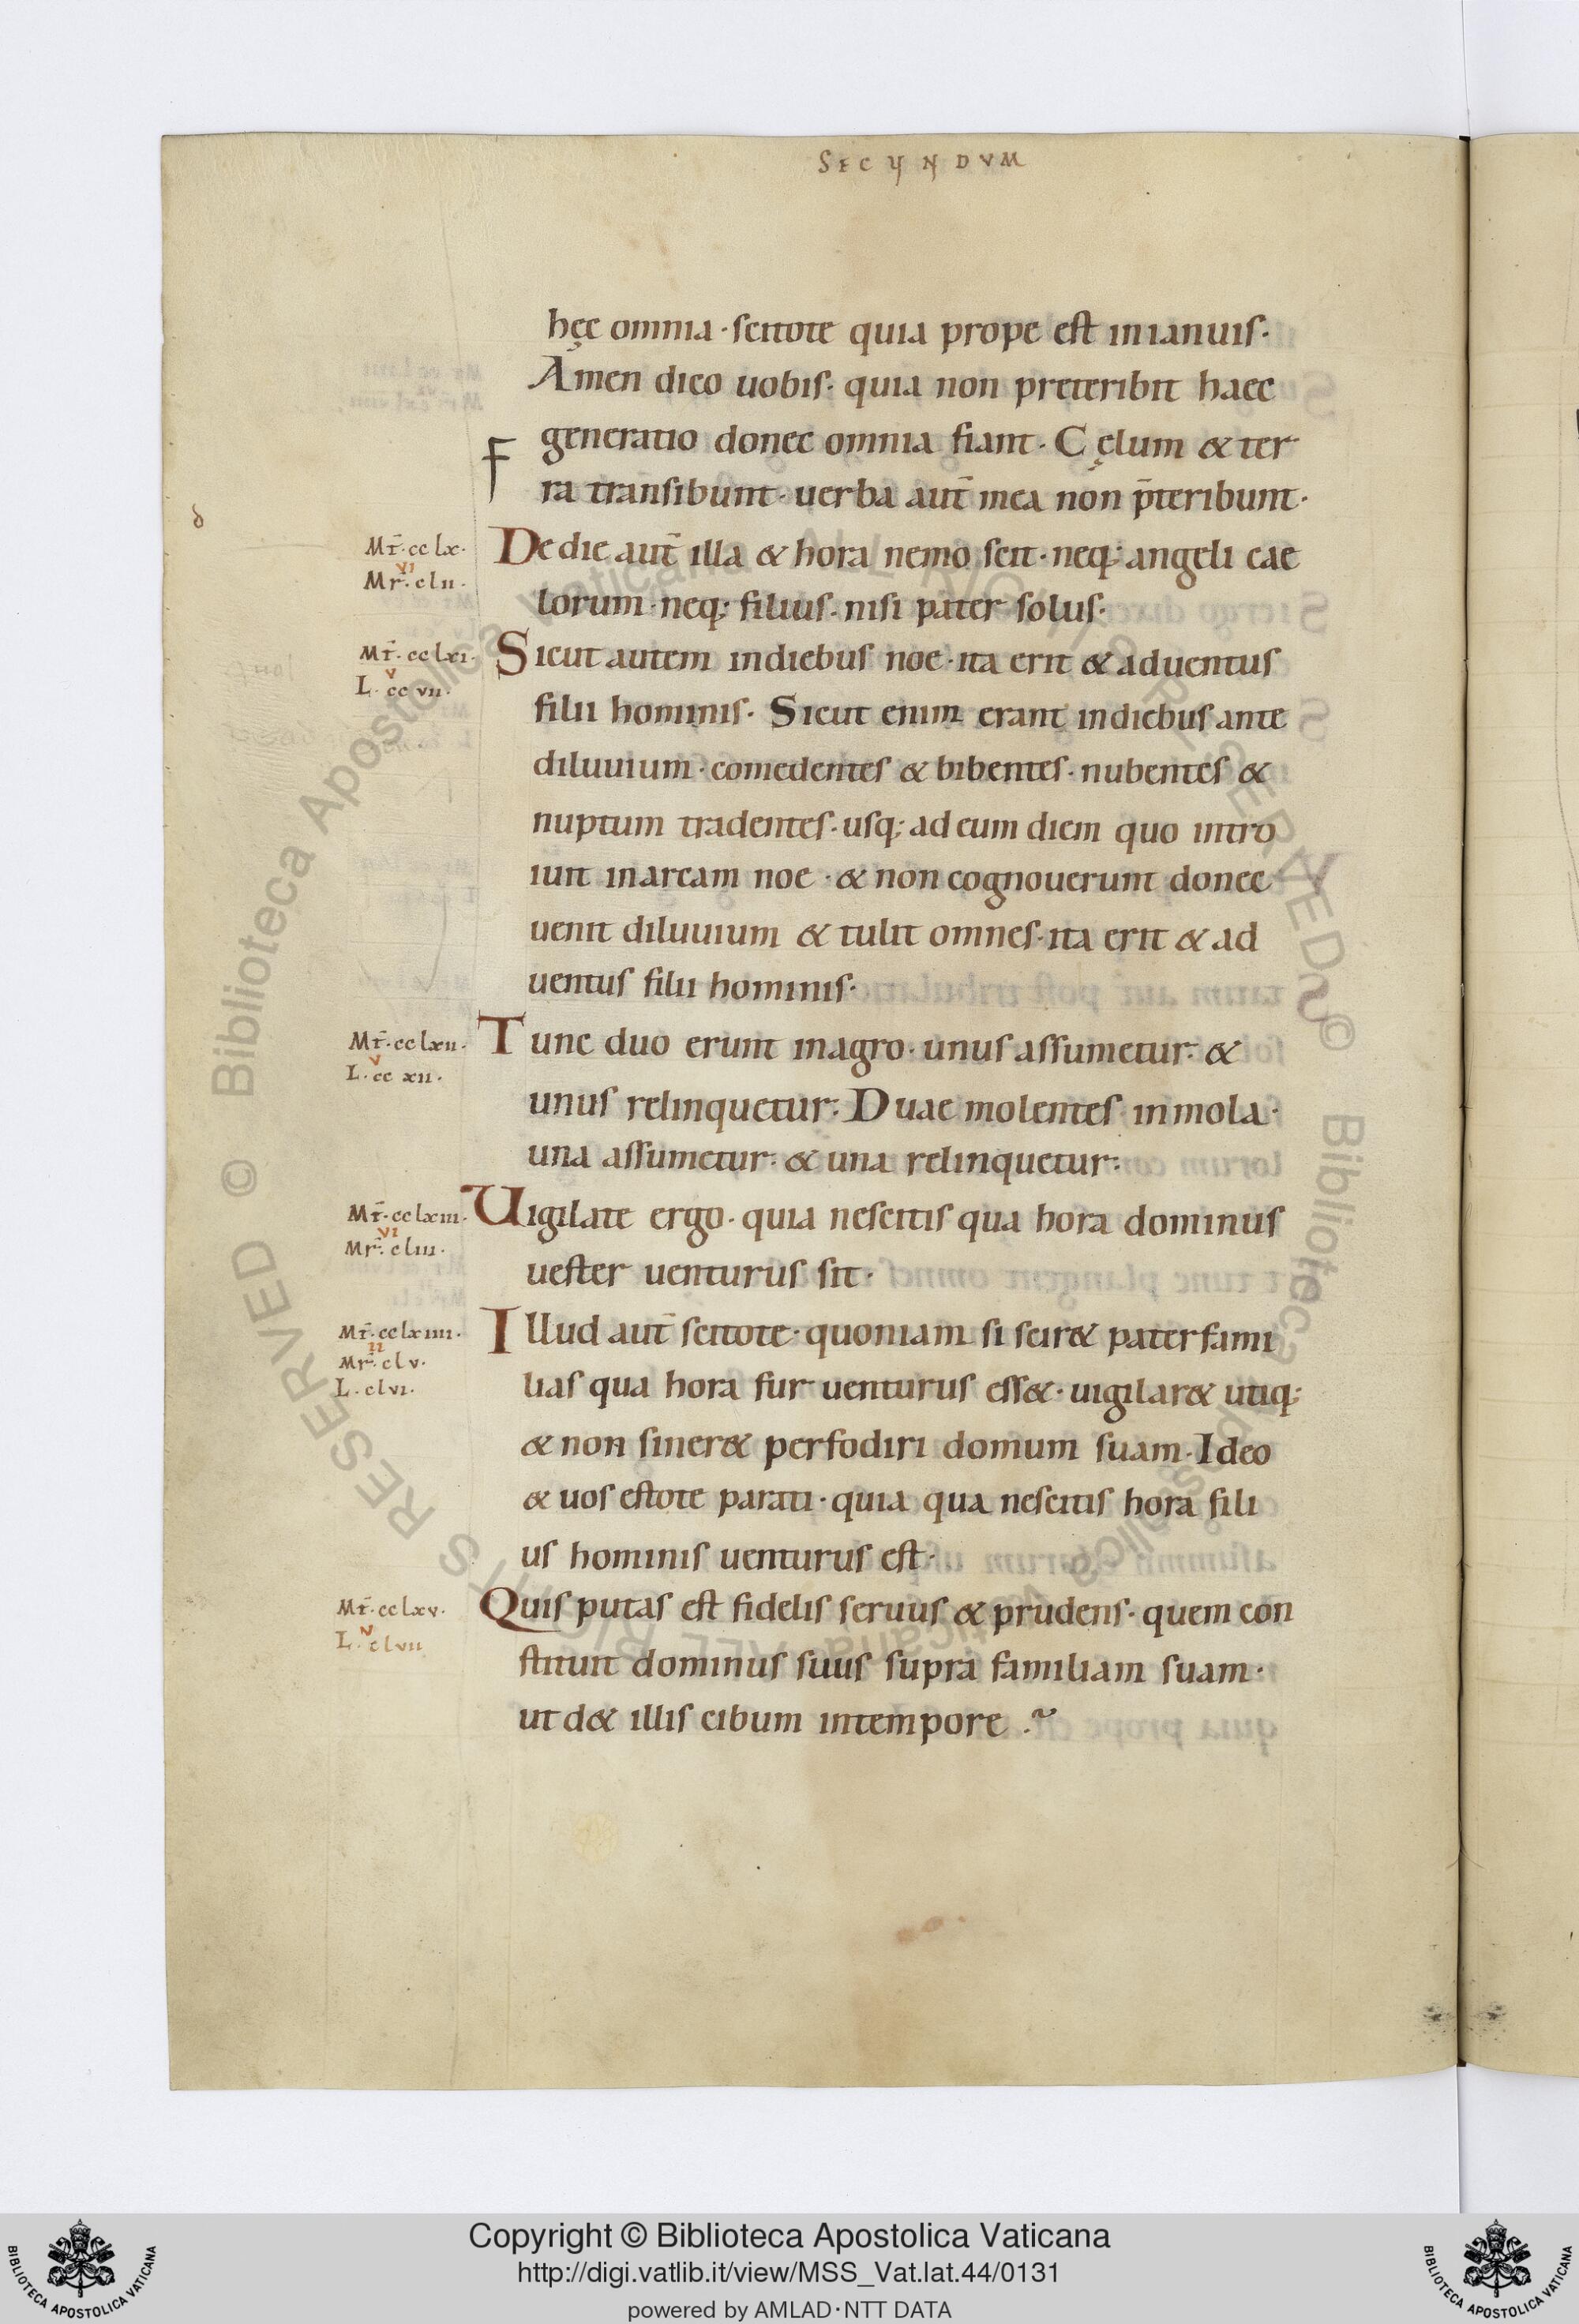 SECUNDUM
hęc omnia · scitote quia prope est in ianuis ·
Amen dico uobis · quia non preteribit haec
generatio donec omnia fiant · Cęlum & ter
f
ra transibunt · uerba aut̄ mea non p̄teribunt ·
δ
Mt̄ · cclx ·
VI
Mr̄ · clii ·
De die aut̄ illa & hora nemo scit · neq; angeli cae
lorum · neq; filius · nisi pater solus ·
Mt̄ · cclxi ·
V
L · ccvii ·
Sicut autem in diebus noe · ita erit & aduentus
filii hominis · Sicut enim erant in diebus ante
diluuium · comedentes & bibentes · nubentes &
nuptum tradentes · usq; ad eum diem quo intro
iuit in arcam noe · & non cognouerunt donec
uenit diluuium & tulit omnes · ita erit & ad
uentus filii hominis ·
Mt̄ · cclxii ·
V
L · ccxii ·
Tunc duo erunt in agro · unus assumetur : &
unus relinquetur : Duae molentes in mola ·
una assumetur : & una relinquetur :
Mt̄ · cclxiii ·
VI
Mr̄ · cliii ·
Uigilate ergo · quia nescitis qua hora dominus
uester uenturus sit ·
Mt̄ · cclxiiii ·
II
Mr̄ · clv ·
L · clvi ·
Illud aut̄ scitote · quoniam si scir& pater fami
lias qua hora fur uenturus ess& · uigilar& utiq;
& non siner& perfodiri domum suam · Ideo
& uos estote parati · quia qua nescitis hora fili
us hominis uenturus est ·
Mt̄ · cclxv ·
V
L · clvii
Quis putas est fidelis seruus & prudens · quem con
stituit dominus suus supra familiam suam ·
ut d& illis cibum in tempore .~
© Biblioteca Apostolica Vaticana ALL RIGHTS RESERVED
© Biblioteca Apostolica Vaticana ALL RIGHTS RESERVED
Copyright © Biblioteca Apostolica Vaticana
http://digi.vatlib.it/view/MSS_Vat.lat.44/0131
powered by AMLAD · NTT DATA
BIBLIOTECA APOSTOLICA VATICANA
BIBLIOTECA APOSTOLICA VATICANA